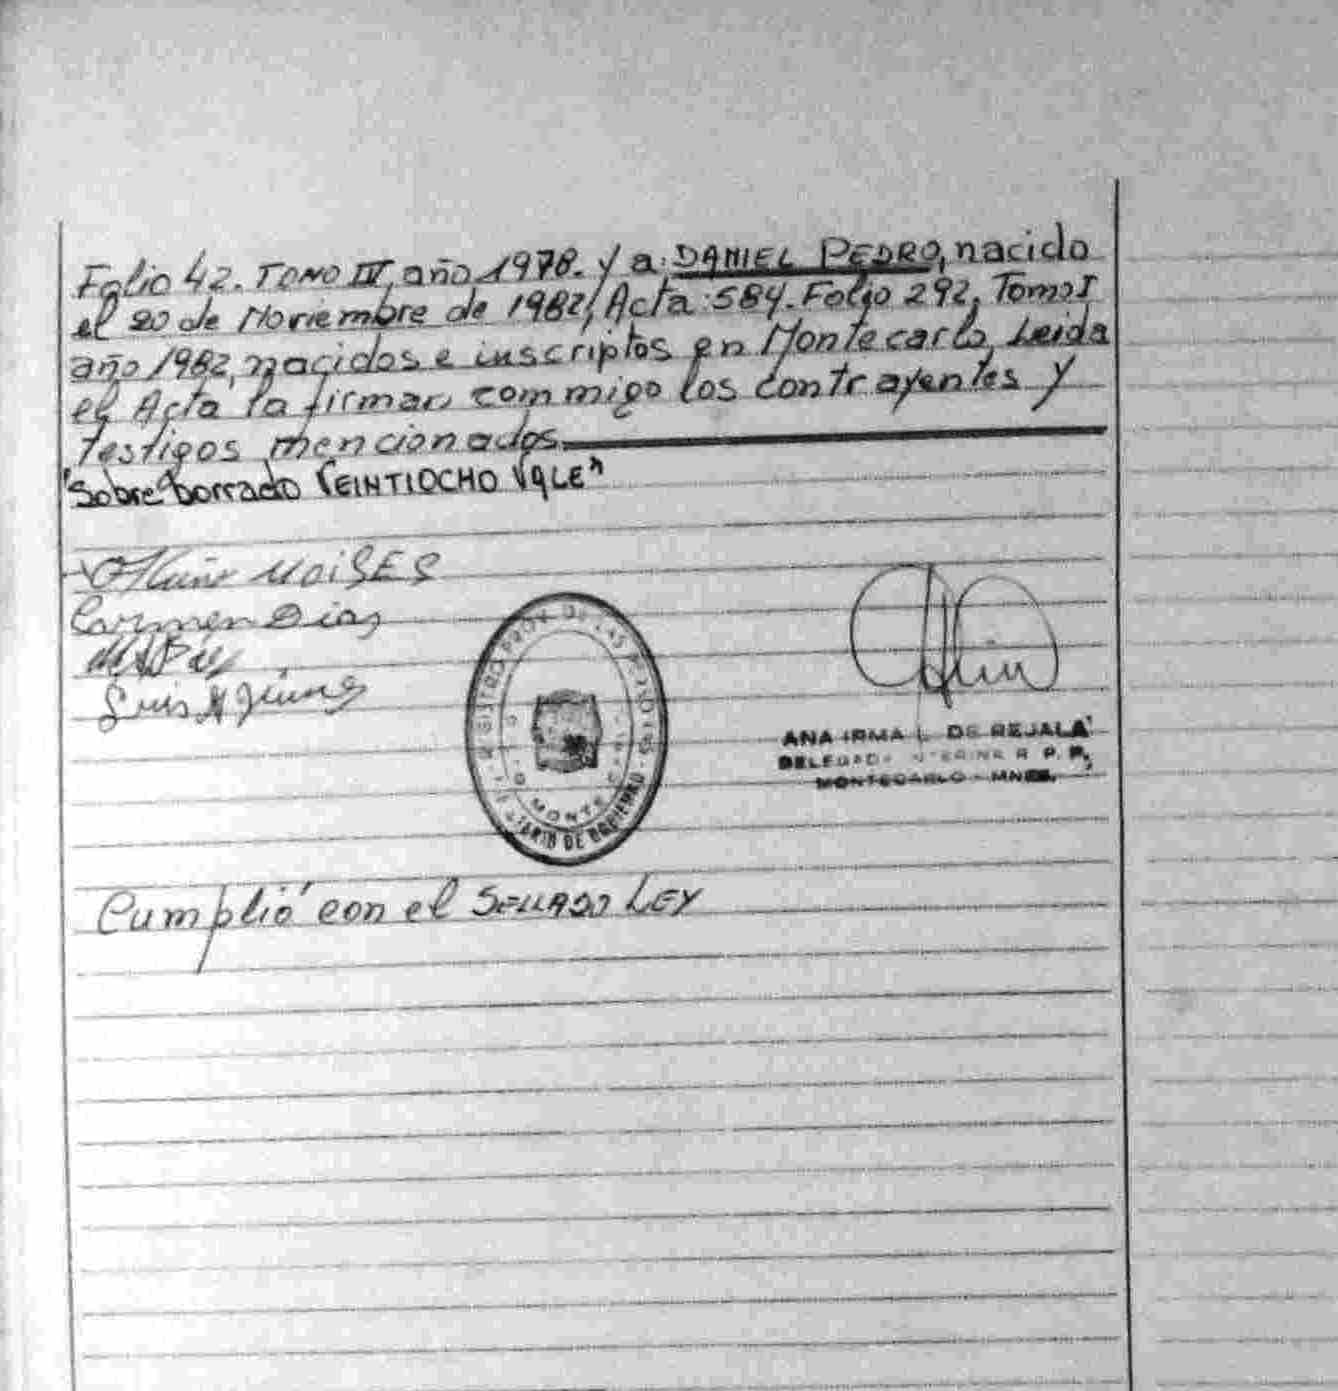 Folio 42. TOMO IV, año 1978. Y a: DANIEL PEDRO, nacido
el 20 de Noviembre de 1982, Acta: 584. Folio 292, Tomo I
año 1982, nacidos e inscriptos en Montecarlo, Leida
el Acta la firman conmigo los contrayentes y
testigos mencionados.
"Sobre borrado VEINTIOCHO VALE"
MOISES
Carmen Dias
Luis A
REGISTRO PROV. DE LAS PERSONAS
MONTE
DE GOBIERNO
ANA IRMA L. DE REJALA
DELEGADA INTERINA R. P. P.
MONTECARLO - MNES.
Cumplió con el SELLADO LEY